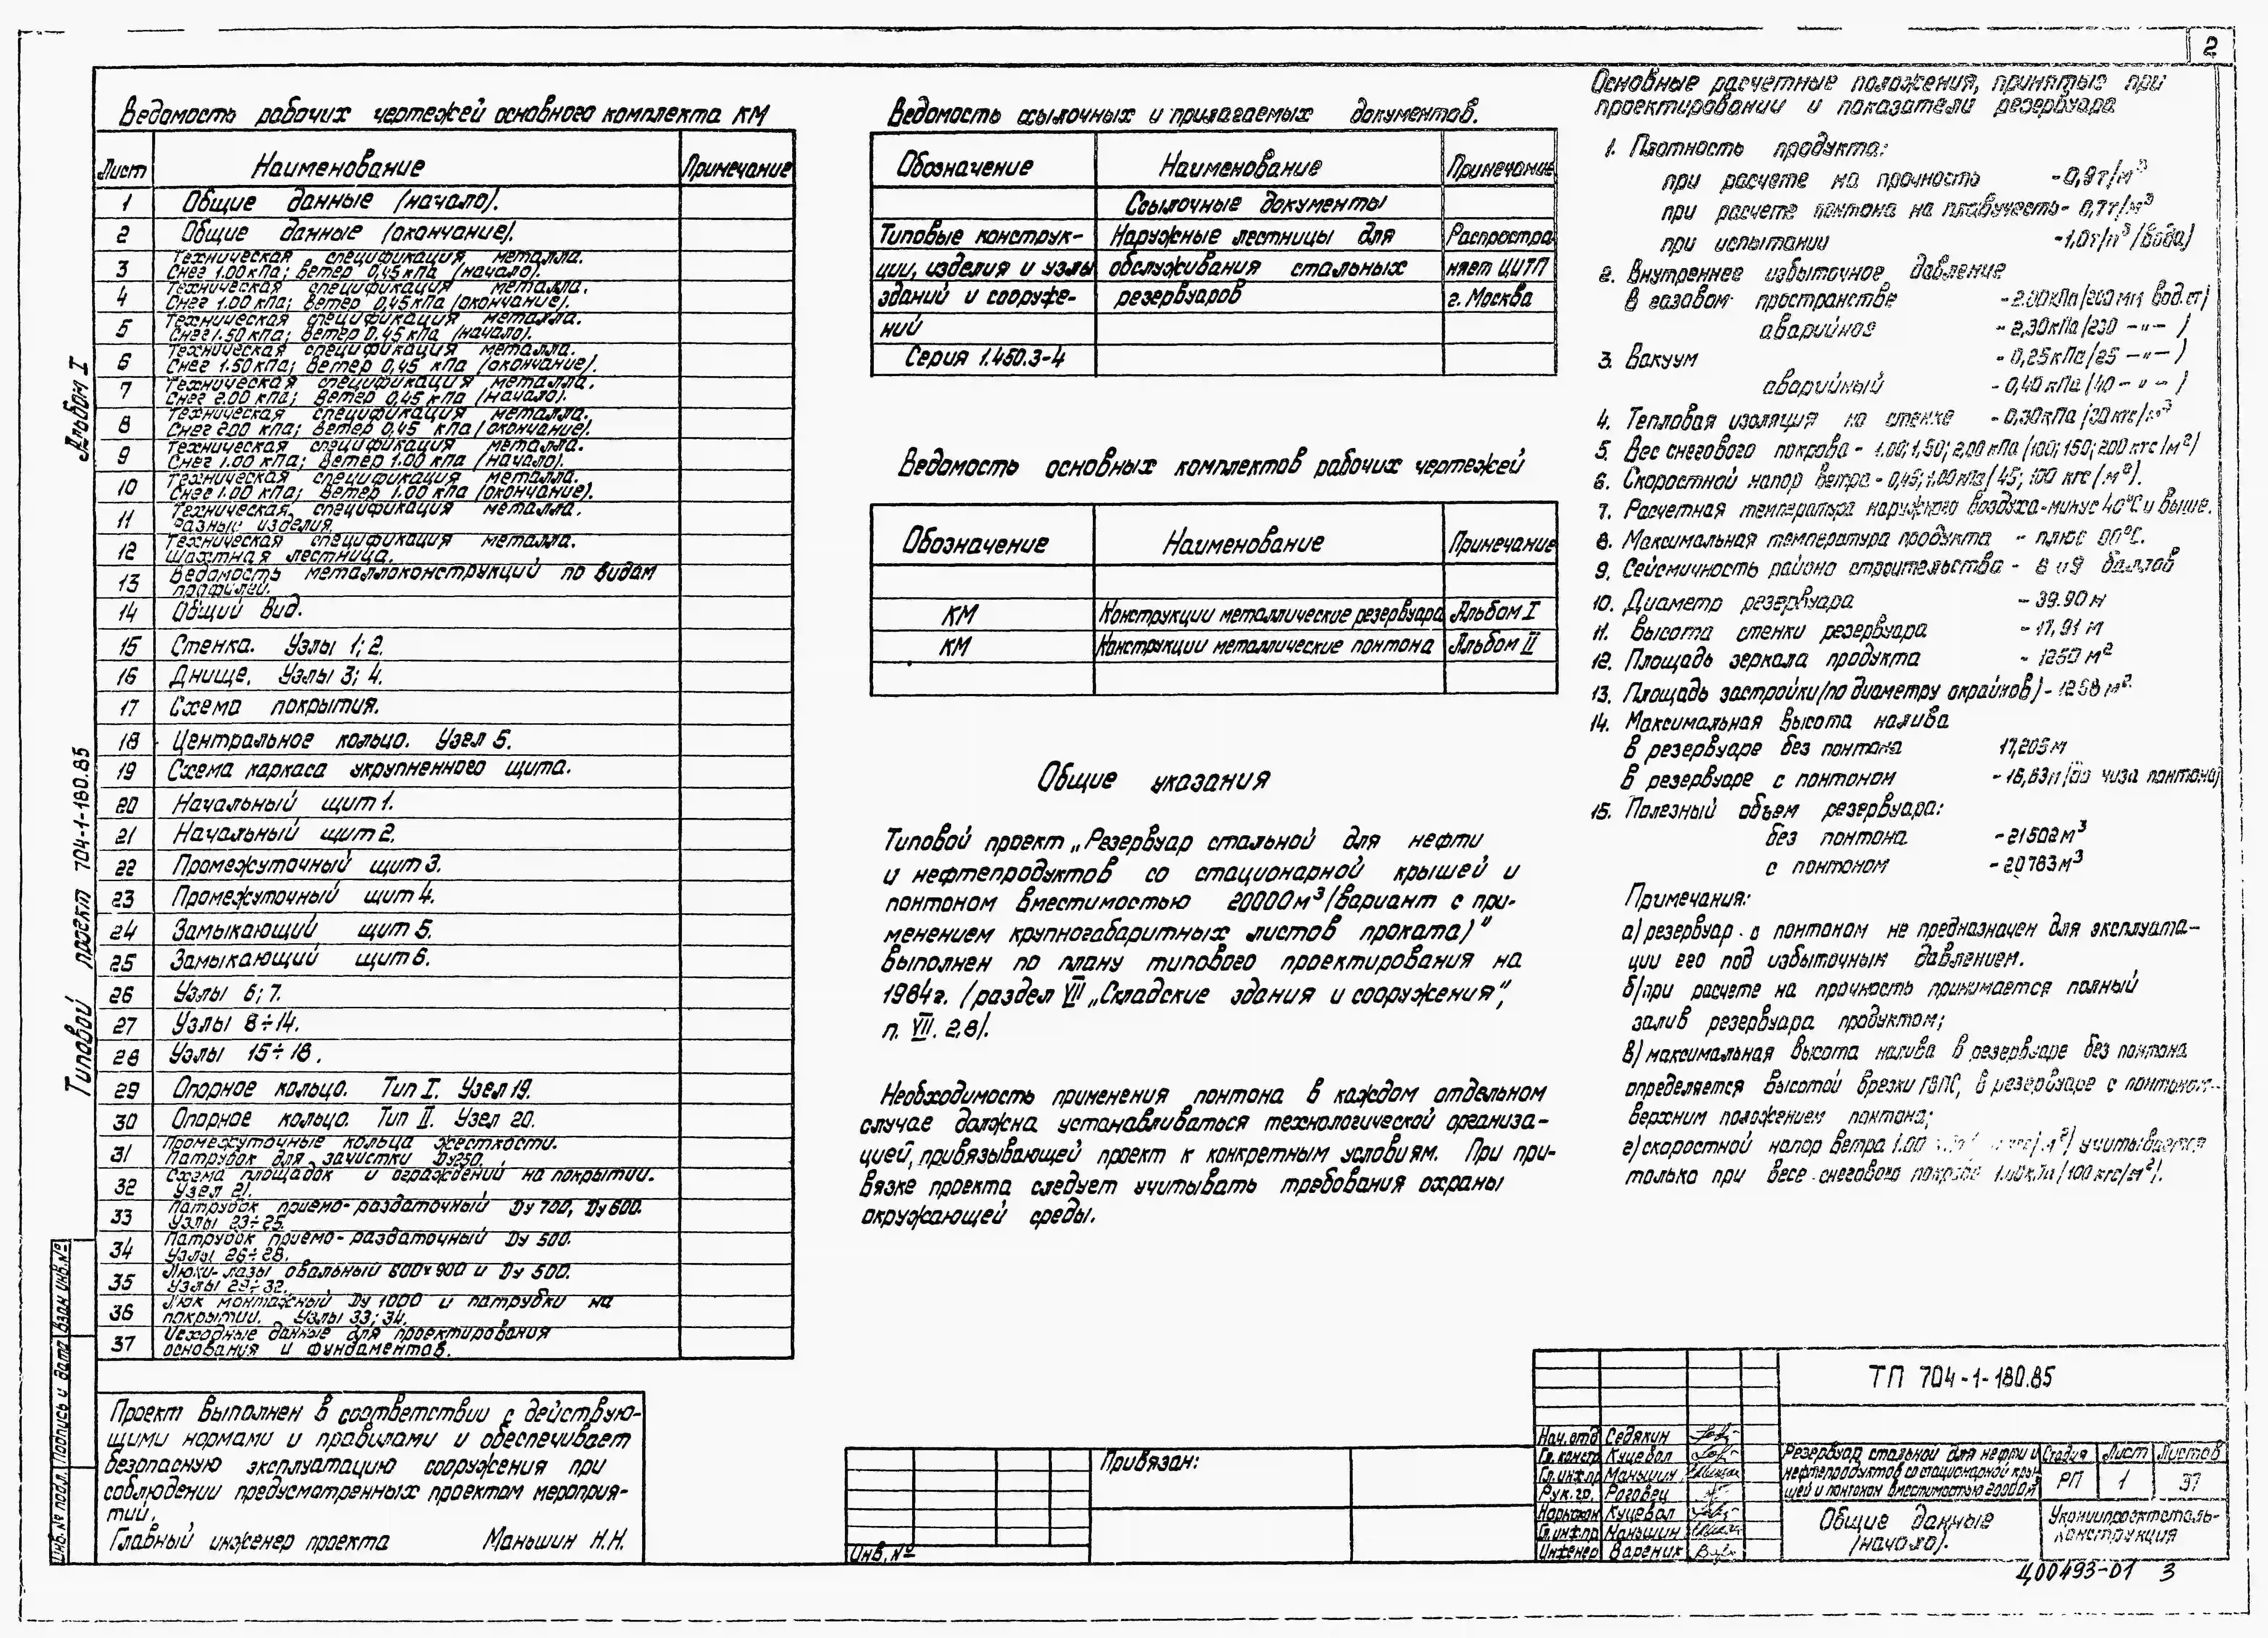 2
Ведомость рабочих чертежей основного комплекта КМ
Лист Наименование Примечание
1 Общие данные (начало).
2 Общие данные (окончание).
3 Техническая спецификация металла.
Снег 1.00 кПа; ветер 0,45 кПа (начало).
4 Техническая спецификация металла.
Снег 1.00 кПа; ветер 0,45 кПа (окончание).
5 Техническая спецификация металла.
Снег 1.50 кПа; ветер 0,45 кПа (начало).
6 Техническая спецификация металла.
Снег 1.50 кПа; ветер 0,45 кПа (окончание).
7 Техническая спецификация металла.
Снег 2.00 кПа; ветер 0,45 кПа (начало).
8 Техническая спецификация металла.
Снег 2.00 кПа; ветер 0,45 кПа (окончание).
9 Техническая спецификация металла.
Снег 1.00 кПа; ветер 1.00 кПа (начало).
10 Техническая спецификация металла.
Снег 1.00 кПа; ветер 1.00 кПа (окончание).
11 Техническая спецификация металла.
Разные изделия.
12 Техническая спецификация металла.
Шахтная лестница.
13 Ведомость металлоконструкций по видам
профилей.
14 Общий вид.
15 Стенка. Узлы 1; 2.
16 Днище. Узлы 3; 4.
17 Схема покрытия.
18 Центральное кольцо. Узел 5.
19 Схема каркаса укрупненного щита.
20 Начальный щит 1.
21 Начальный щит 2.
22 Промежуточный щит 3.
23 Промежуточный щит 4.
24 Замыкающий щит 5.
25 Замыкающий щит 6.
26 Узлы 6; 7.
27 Узлы 8÷14.
28 Узлы 15÷18.
29 Опорное кольцо. Тип I. Узел 19.
30 Опорное кольцо. Тип II. Узел 20.
31 Промежуточные кольца жесткости.
Патрубок для зачистки Ду250.
32 Схема площадок и ограждений на покрытии.
Узел 21.
33 Патрубок приемо-раздаточный Ду 700, Ду 600.
Узлы 23÷25.
34 Патрубок приемо-раздаточный Ду 500.
Узлы 26÷28.
35 Люки-лазы овальный 600×900 и Ду 500.
Узлы 29÷32.
36 Люк монтажный Ду 1000 и патрубки на
покрытии. Узлы 33; 34.
37 Исходные данные для проектирования
основания и фундаментов.
Проект выполнен в соответствии с действую-
щими нормами и правилами и обеспечивает
безопасную эксплуатацию сооружения при
соблюдении предусмотренных проектом мероприя-
тий.
Главный инженер проекта Маньшин Н.Н.
Альбом I
Типовой проект 704-1-180.85
Инв.№ подл. Подпись и дата Взам инв.№
Ведомость ссылочных и прилагаемых документов.
Обозначение Наименование Примечание
Ссылочные документы
Типовые конструк- Наружные лестницы для Распростра
ции, изделия и узлы обслуживания стальных няет ЦИТП
зданий и сооруже- резервуаров г. Москва
ний
Серия 1.450.3-4
Ведомость основных комплектов рабочих чертежей
Обозначение Наименование Примечание
КМ Конструкции металлические резервуара Альбом I
КМ Конструкции металлические понтона Альбом II
Общие указания
Типовой проект „Резервуар стальной для нефти
и нефтепродуктов со стационарной крышей и
понтоном вместимостью 20000м³ (вариант с при-
менением крупногабаритных листов проката)"
выполнен по плану типового проектирования на
1984г. (раздел VII „Складские здания и сооружения",
п. VII. 2.8).
Необходимость применения понтона в каждом отдельном
случае должна устанавливаться технологической организа-
цией, привязывающей проект к конкретным условиям. При при-
вязке проекта следует учитывать требования охраны
окружающей среды.
Основные расчетные положения, принятые при
проектировании и показатели резервуара
1. Плотность продукта:
при расчете на прочность - 0,9т/м³
при расчете понтона на плавучесть - 0,7т/м³
при испытании - 1,0т/м³ (вода)
2. Внутреннее избыточное давление
в газовом пространстве - 2.00кПа (200 мм вод.ст)
аварийное - 2,30кПа (230 -"- )
3. Вакуум - 0,25кПа (25 -"- )
аварийный - 0,40кПа (40 -"- )
4. Тепловая изоляция на стенке - 0,30кПа (30кгс/м³
5. Вес снегового покрова - 1.00; 1,50; 2,00 кПа (100; 150; 200 кгс/м²)
6. Скоростной напор ветра - 0,45; 1,00кПа (45; 100 кгс/м²).
7. Расчетная температура наружного воздуха - минус 40°С и выше.
8. Максимальная температура продукта - плюс 90°С.
9. Сейсмичность района строительства - 8 и 9 баллов
10. Диаметр резервуара - 39.90м
11. Высота стенки резервуара - 17,91 м
12. Площадь зеркала продукта - 1250 м²
13. Площадь застройки (по диаметру окрайков) - 1268 м²
14. Максимальная высота налива
в резервуаре без понтона 17,205м
в резервуаре с понтоном - 16,63м (до низа понтона)
15. Полезный объем резервуара:
без понтона - 21502м³
с понтоном - 20783м³
Примечания:
а) резервуар с понтоном не предназначен для эксплуата-
ции его под избыточным давлением.
б) при расчете на прочность принимается полный
залив резервуара продуктом;
в) максимальная высота налива в резервуаре без понтона
определяется высотой врезки ГВПС, в резервуаре с понтоном-
верхним положением понтона;
г) скоростной напор ветра 1.00 учитывается
только при весе снегового покрова 1.00кПа (100 кгс/м²).
Привязан:
Инв.№
ТП 704-1-180.85
Нач.отд Седякин
Гл.констр Кучевол
Гл.инж.пр Маньшин
Рук.гр. Роговец
Нормокон Кучевол
Гл.инж.пр Маньшин
Инженер Вареник
Резервуар стальной для нефти и
нефтепродуктов со стационарной кры-
шей и понтоном вместимостью 20000м³
Стадия Лист Листов
РП 1 37
Общие данные
(начало).
Укрниипроектсталь-
конструкция
Ц00493-01 3